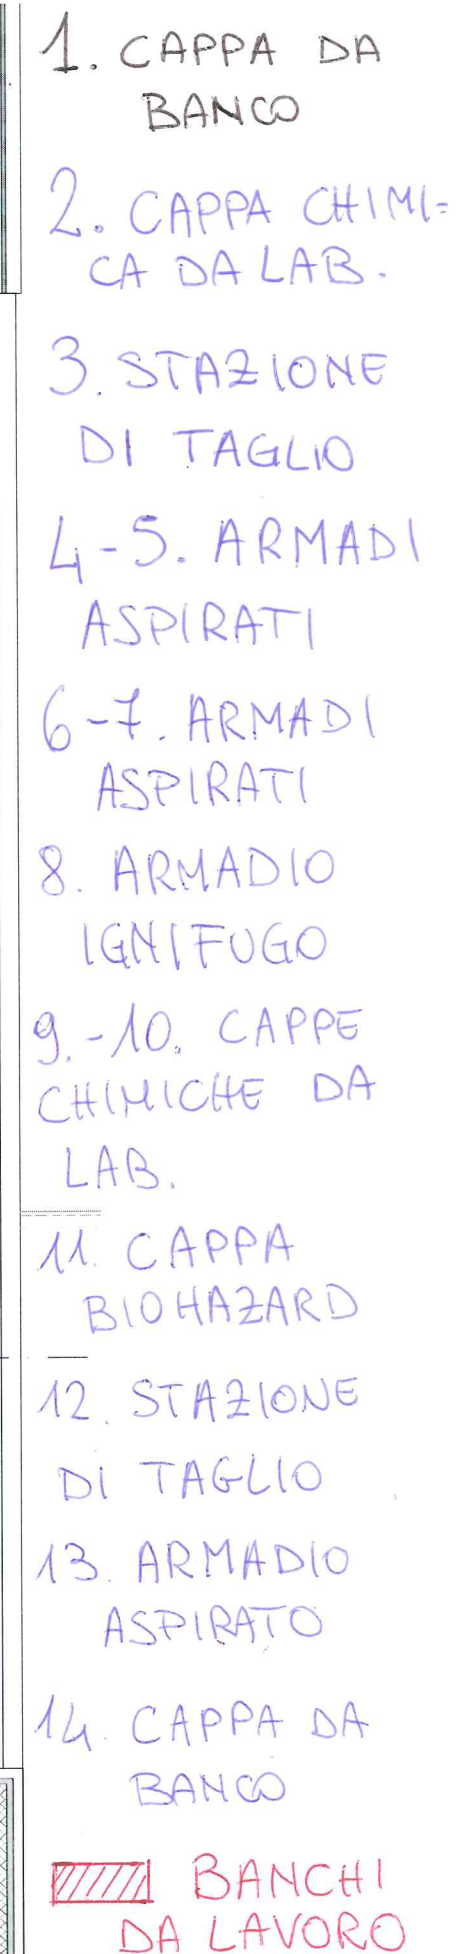 1. CAPPA DA
BANCO
2. CAPPA CHIMI=
CA DA LAB.
3. STAZIONE
DI TAGLIO
4-5. ARMADI
ASPIRATI
6-7. ARMADI
ASPIRATI
8. ARMADIO
IGNIFUGO
9.-10. CAPPE
CHIMICHE DA
LAB.
11. CAPPA
BIOHAZARD
12. STAZIONE
DI TAGLIO
13. ARMADIO
ASPIRATO
14. CAPPA DA
BANCO
BANCHI
DA LAVORO